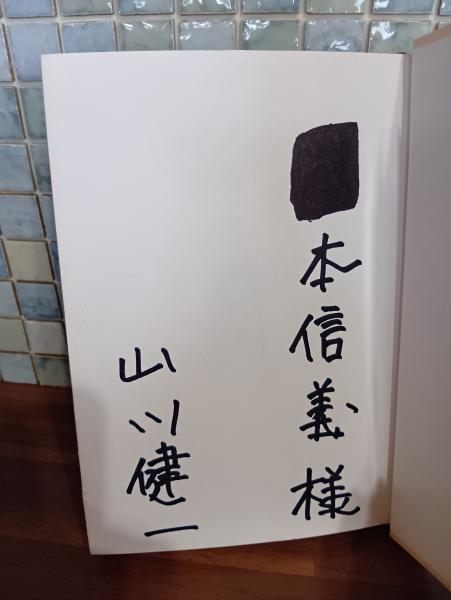 本信義様
山川健一